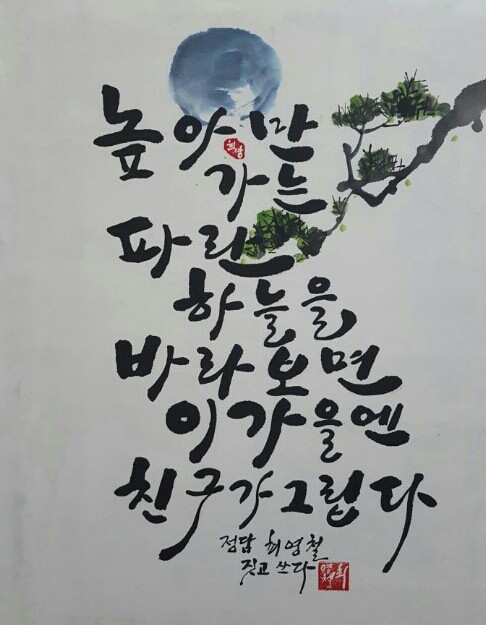 높아만
가는
파란
하늘을
바라보면
이 가을엔
친구가 그립다
정담 최영철
짓고 쓰다